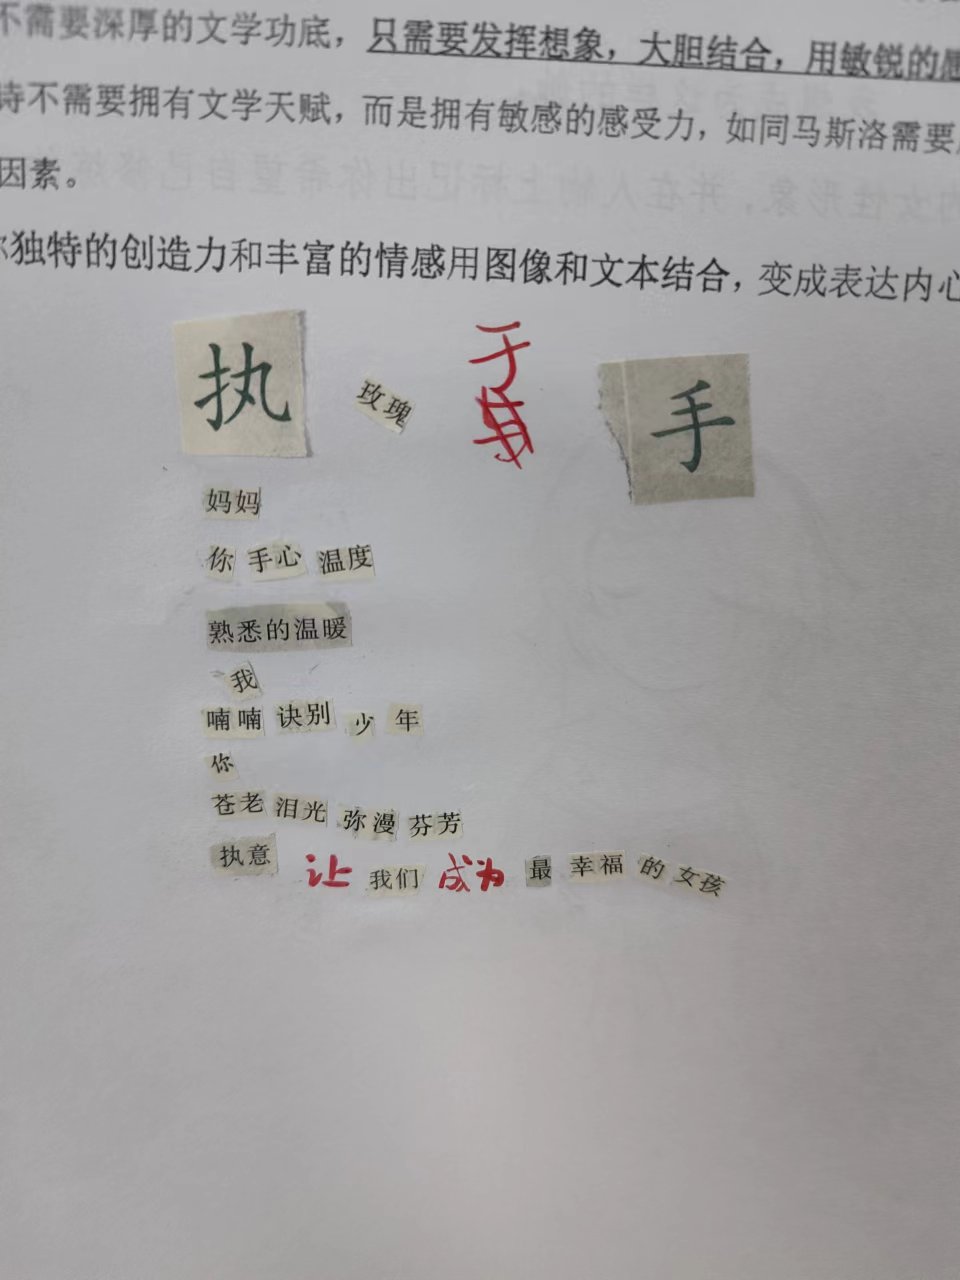 不需要深厚的文学功底，只需要发挥想象，大胆结合，用敏锐的感
诗不需要拥有文学天赋，而是拥有敏感的感受力，如同马斯洛需要
因素。
你独特的创造力和丰富的情感用图像和文本结合，变成表达内心
执 玫瑰 于 手
妈妈
你 手心 温度
熟悉的温暖
我
喃喃 诀别 少 年
你
苍老 泪光 弥漫 芬芳
执意 让 我们 成为 最 幸福 的 女孩